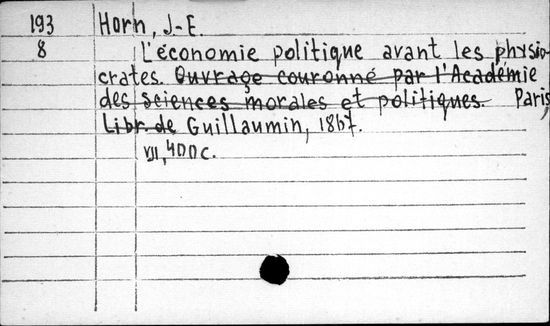 193 Horn, J-E.
8 L'économie politique avant les physio-
crates. Ouvrage couronné par l'Académie
des sciences morales et politiques. Paris,
Libr. de Guillaumin, 1867.
VIII, 400 c.